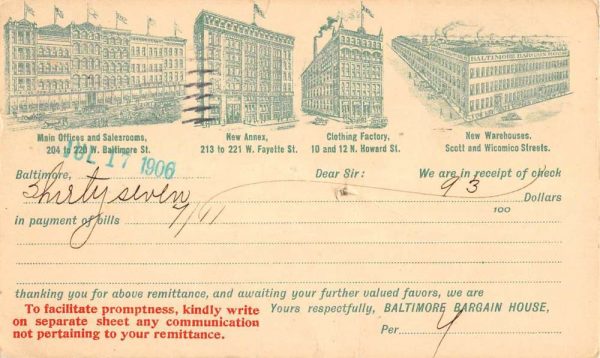 BALTIMORE BARGAIN HOUSE
Main Offices and Salesrooms,
204 to 220 W. Baltimore St.
New Annex,
213 to 221 W. Fayette St.
Clothing Factory,
10 and 12 N. Howard St.
New Warehouses.
Scott and Wicomico Streets.
JUL 17 1906
Baltimore, Dear Sir: We are in receipt of check
Thirty seven 93 Dollars
100
in payment of bills 7/11
thanking you for above remittance, and awaiting your further valued favors, we are
Yours respectfully, BALTIMORE BARGAIN HOUSE,
To facilitate promptness, kindly write
on separate sheet any communication
not pertaining to your remittance.
Per